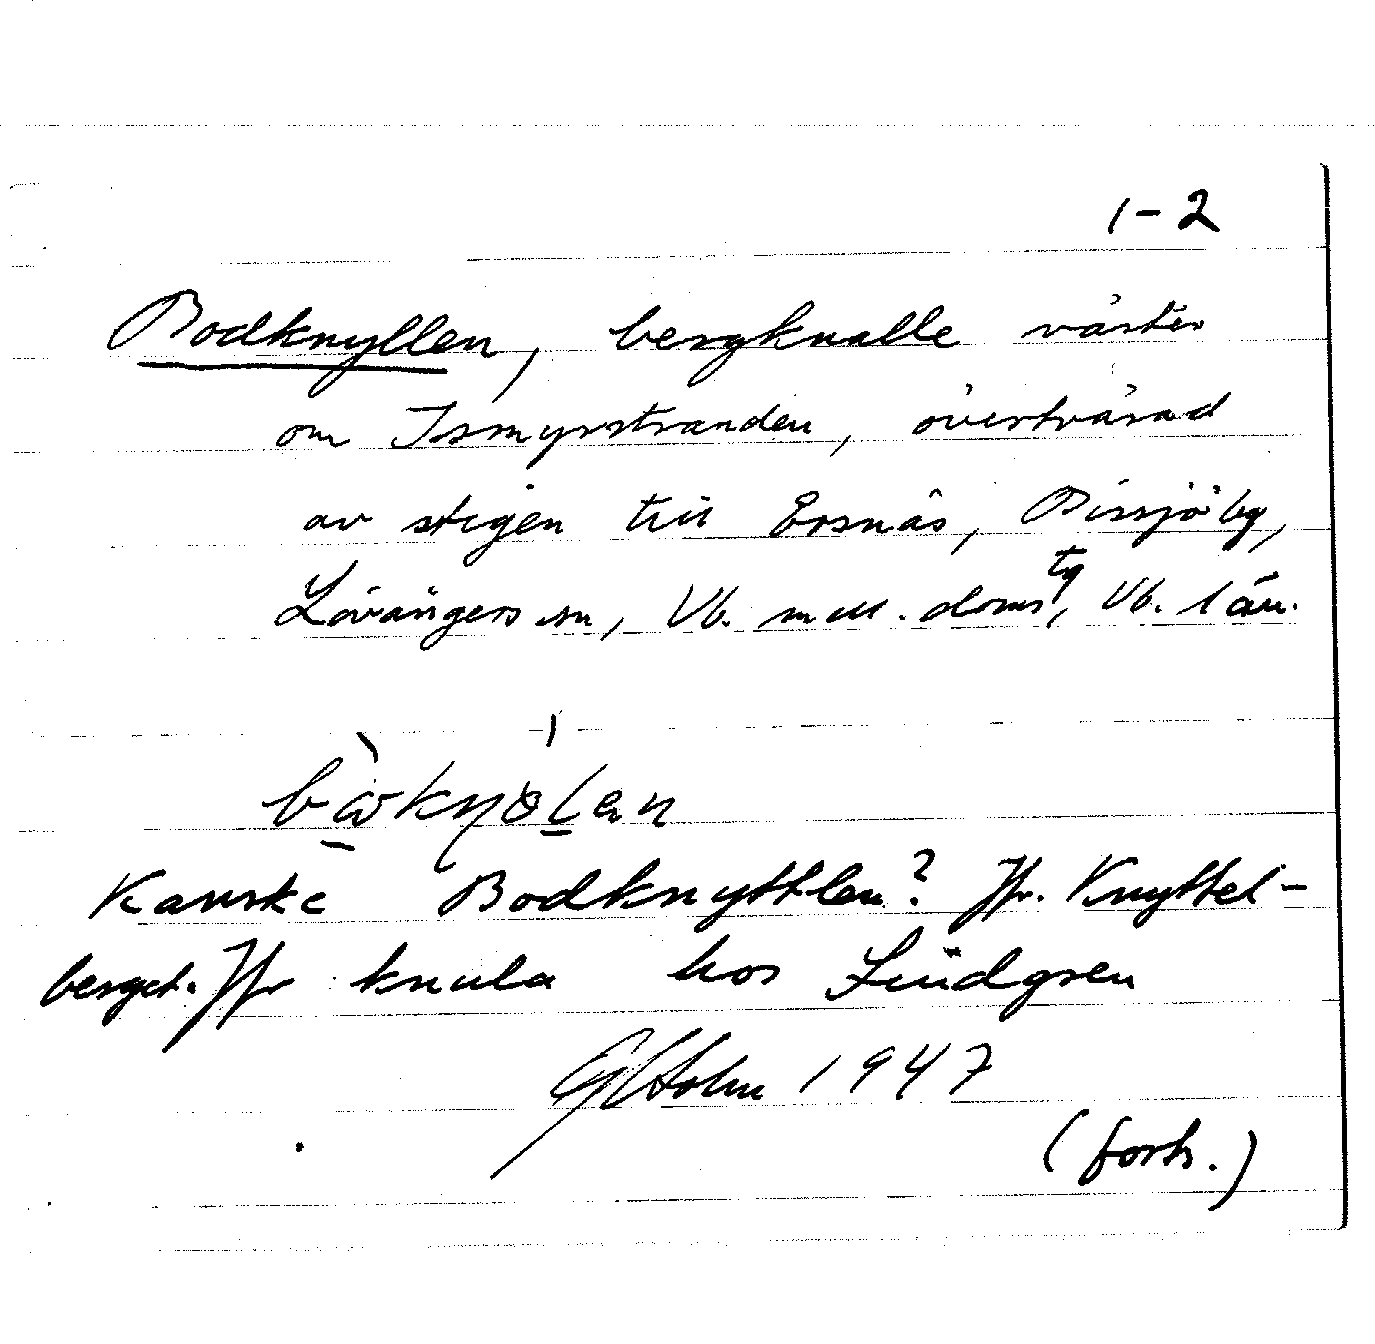 1-2
Bodknyllen, bergknalle väster
om Ismyrstranden, övertvärad
av stigen till Ersnäs, Bissjö by,
Lövångers sn, Vb. mell. doms tg, Vb. län.
Kanske Bodknyttlen? Jfr. Knyttel-
berget. Jfr knula hos Lindgren
Holm 1947
(forts.)